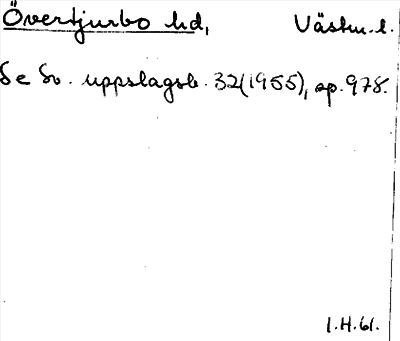 Övertjurbo hd, Västm. l.
Se Sv. uppslagsb. 32(1955), sp. 978.
1.H.61.